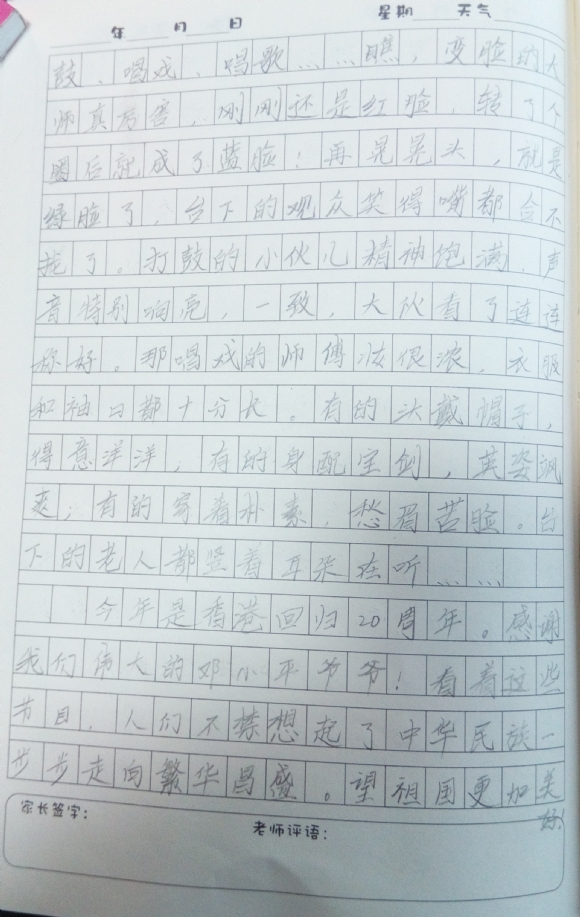 年 月 日 星期 天气
鼓、唱戏、唱歌……瞧，变脸的大
师真厉害，刚刚还是红脸，转了个
圈后就成了蓝脸！再晃晃头，就是
绿脸了，台下的观众笑得嘴都合不
拢了。打鼓的小伙儿精神饱满，声
音特别响亮，一致，大伙看了连连
称好。那唱戏的师傅妆很浓，衣服
和袖口都十分长。有的头戴帽子，
得意洋洋；有的身配宝剑，英姿飒
爽；有的穿着朴素，愁眉苦脸。台
下的老人都竖着耳朵在听……
今年是香港回归20周年。感谢
我们伟大的邓小平爷爷！看着这些
节目，人们不禁想起了中华民族一
步步走向繁华昌盛。望祖国更加美
好！
家长签字：
老师评语：